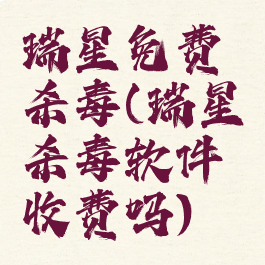 瑞星免费
杀毒(瑞星
杀毒软件
收费吗)